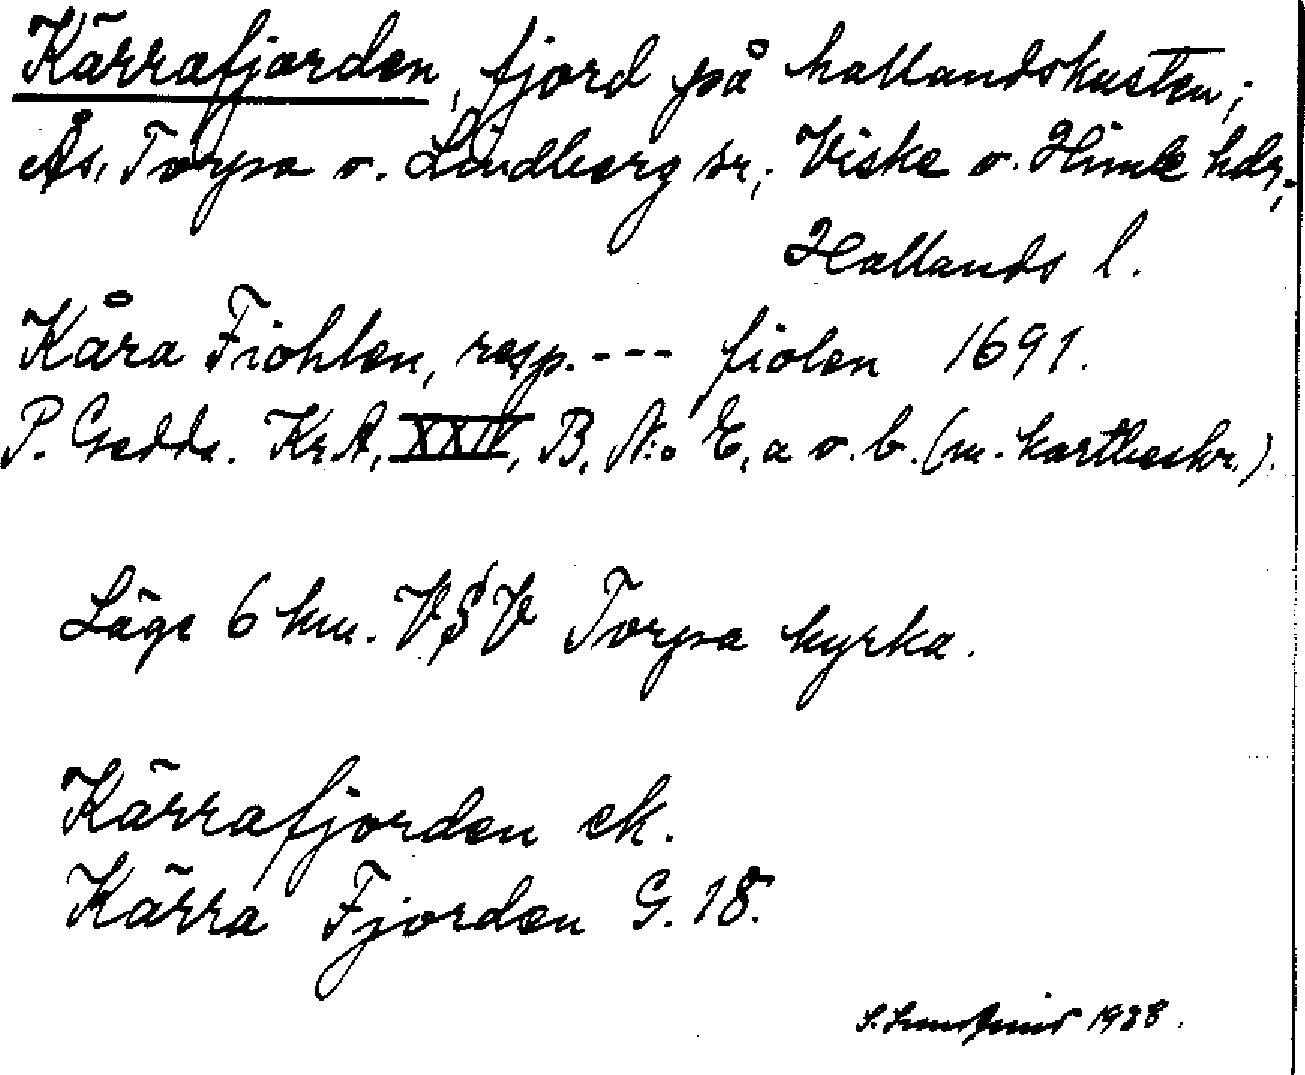 Kärrafjorden, fjord på hallandskusten;
Ås, Torpa o. Lindberg sn; Viske o. Himle hdr;
Hallands l.
Kåra Fiohlen, resp. --- fiolen 1691.
P. Gedda. Kr.A, XXIV, B, N:o E, a o. b. (m. kartbeskr.).
Läge 6 km. VSV Torpa kyrka.
Kärrafjorden ek.
Kärra Fjorden G. 18.
1928.